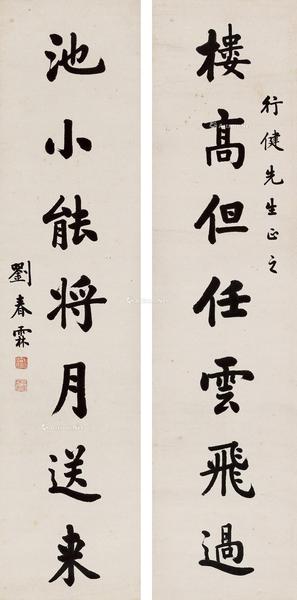 行健先生正之
樓高但任雲飛過
池小能将月送来
劉春霖